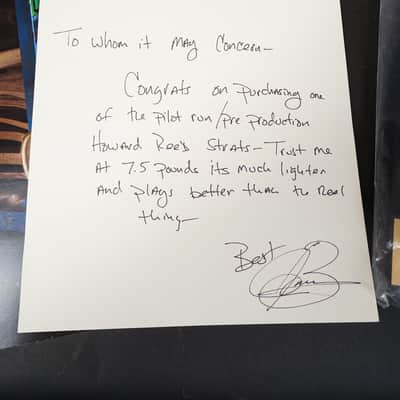 To Whom it May Concern-
Congrats on purchasing one
of the pilot run/pre production
Howard Reed Strats - Trust me
At 7.5 pounds its much lighter
And plays better than the Real
thing-
Best